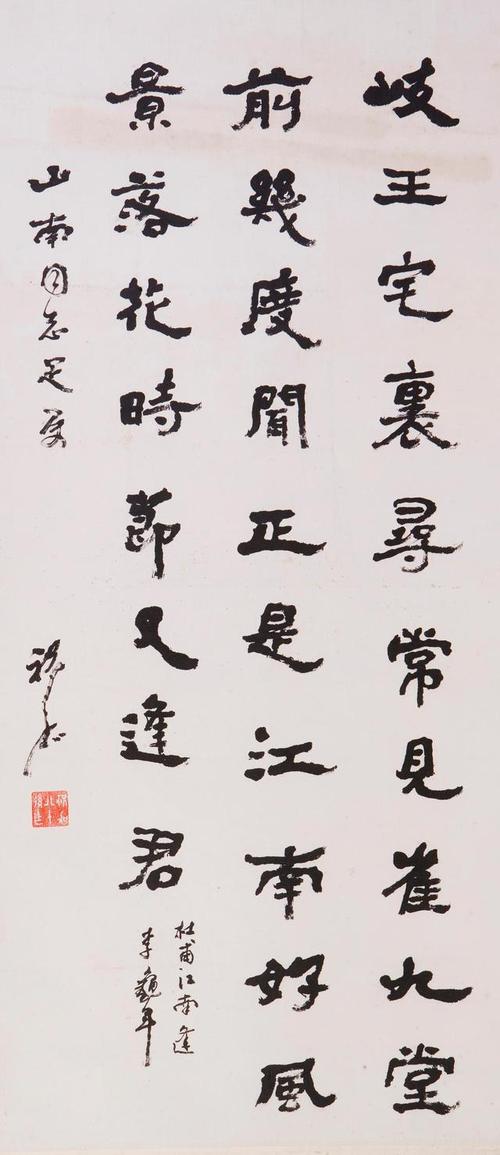 岐王宅裏尋常見崔九堂
前幾度聞正是江南好風
景落花時節又逢君
杜甫江南逢
李龜年
山南同志